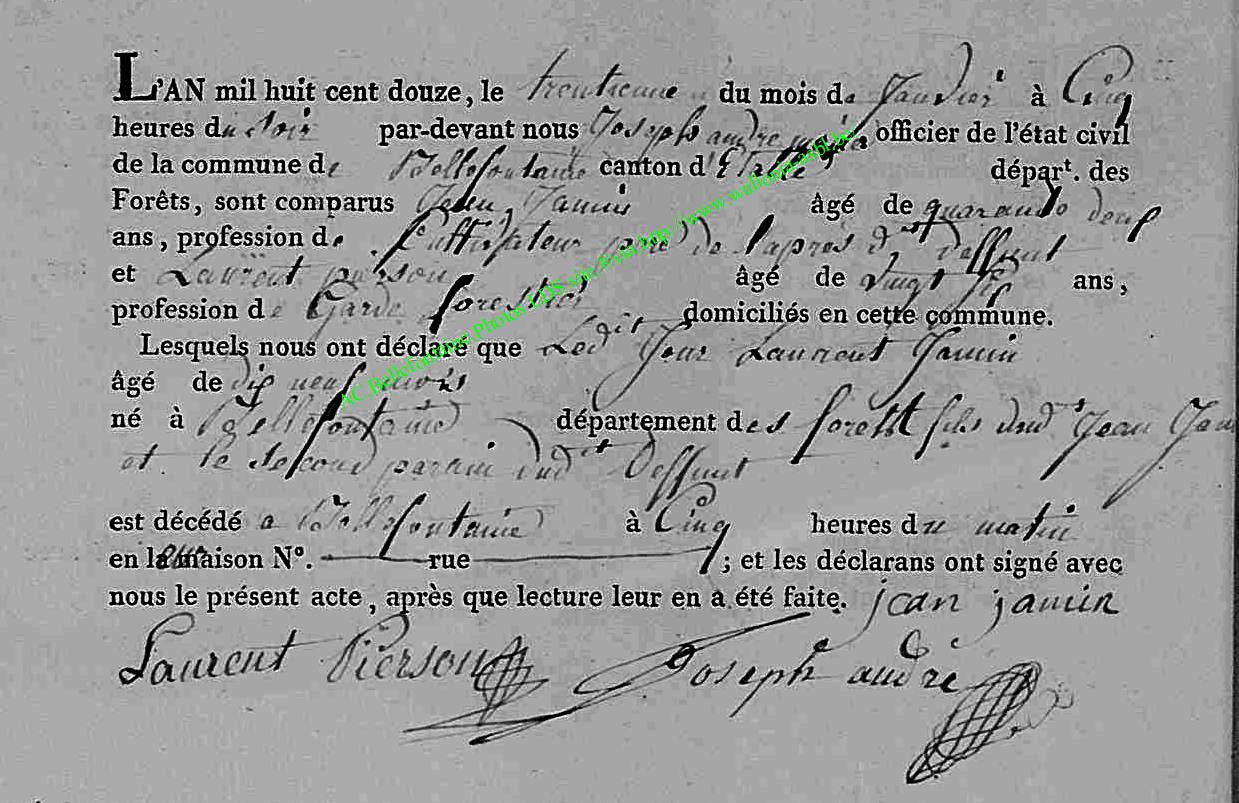 L'AN mil huit cent douze, le trentienne du mois de Janvier à Cinq
heures du soir par-devant nous Joseph andre officier de l'état civil
de la commune de Bellefontaine canton d'Etalle départ. des
Forêts, sont comparus Jean Jamin âgé de quarante deux
ans, profession de Cultivateur de
et Laurent pierson âgé de vingt ans,
profession de Garde forestier domiciliés en cette commune.
Lesquels nous ont déclaré que Ledit Jour Laurent Jamin
âgé de dix neuf mois
né à Bellefontaine département des forett fils dud Jean Jam
et le second parain dudit Deffunt
est décédé a Bellefontaine à Cinq heures du matin
en la maison N°. rue ; et les déclarans ont signé avec
nous le présent acte, après que lecture leur en a été faite. jean jamin
Laurent Pierson Joseph andre
AC.Bellefontaine Photos LDS site & via http://www.wallonia-asbl.be/